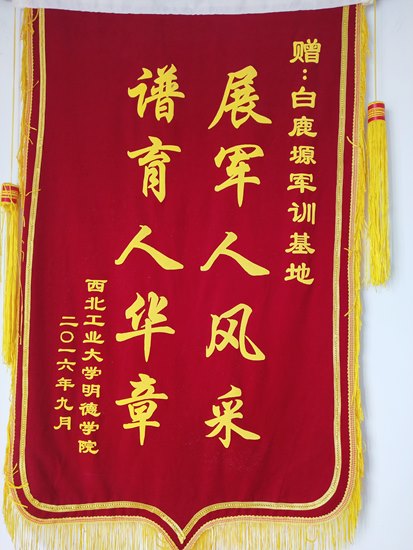 赠：白鹿塬军训基地
展军人风采
谱育人华章
西北工业大学明德学院
二〇一六年九月